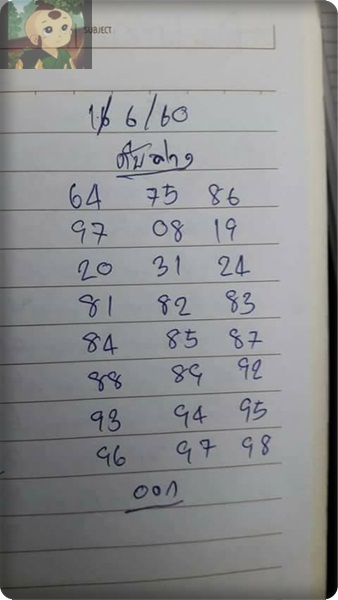 SUBJECT
16/6/60
ดับล่าง
64 75 86
97 08 19
20 31 24
81 82 83
84 85 87
88 89 92
93 94 95
96 97 98
ออก